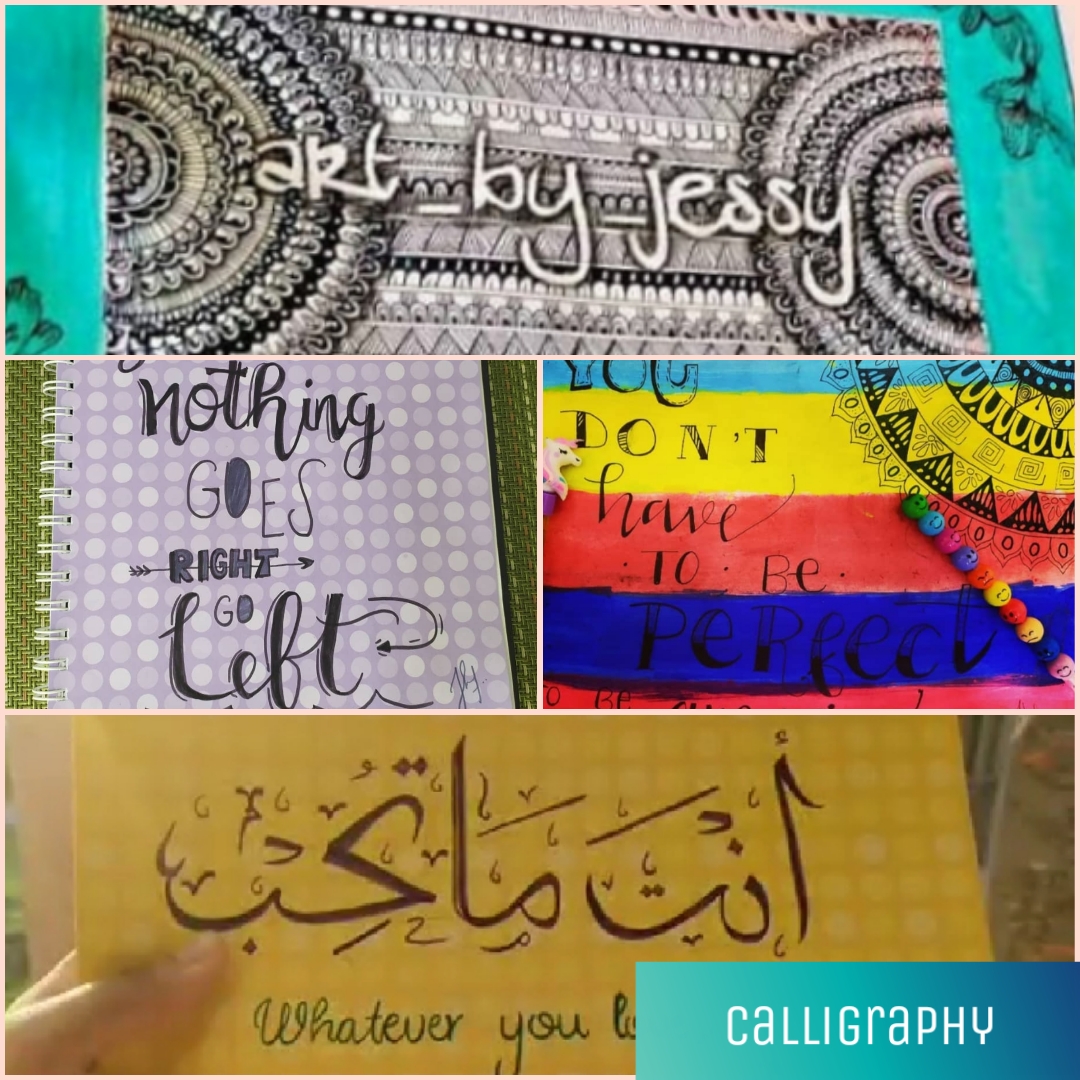 art_by_jessy
nothing
GOES
RIGHT
GO
left
YOU
DON'T
have
TO BE
PERFECT
TO BE
أنت ما تحب
Whatever you
CALLIGRAPHY